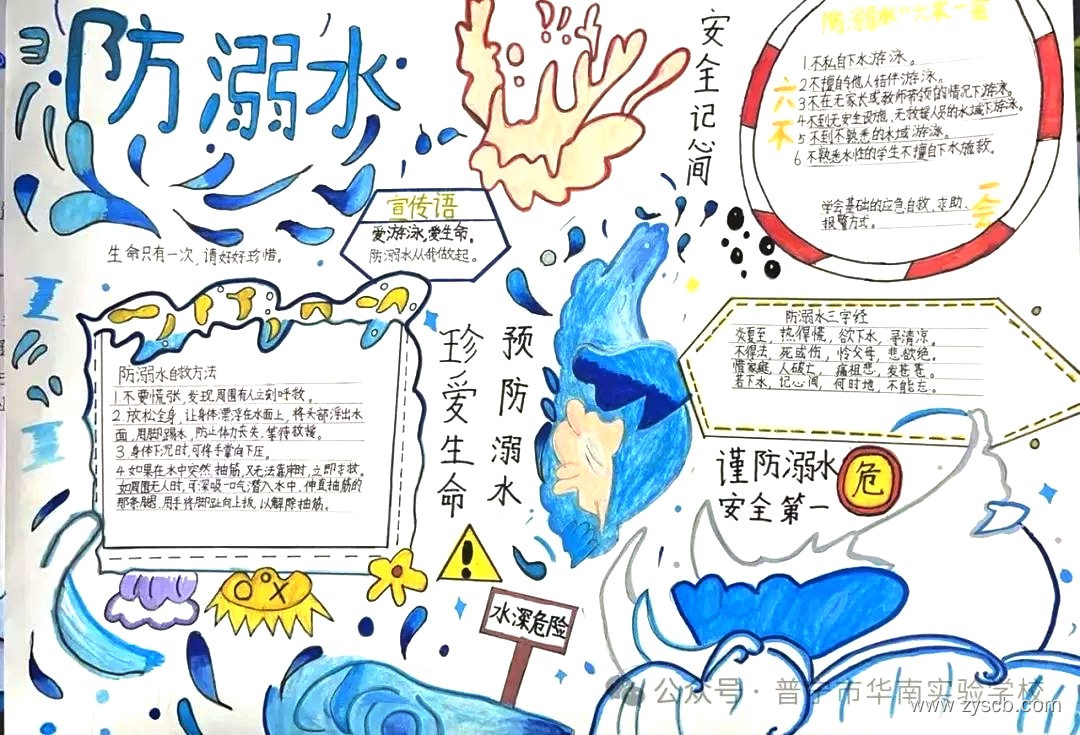 防溺水
生命只有一次,请好好珍惜。
宣传语
爱游泳,爱生命。
防溺水从你做起。
安全记心间
防溺水"六不一会
六不
1不私自下水游泳。
2不擅自与他人结伴游泳。
3不在无家长或教师带领的情况下游泳。
4不到无安全设施、无救援人员的水域下游泳。
5不到不熟悉的水域游泳。
6不熟悉水性的学生不擅自下水施救。
一会
学会基础的应急自救、求助、
报警方式。
防溺水自救方法
1不要慌张,发现周围有人立刻呼救。
2.放松全身,让身体漂浮在水面上,将头部浮出水
面,用脚踢水,防止体力丧失,等待救援。
3身体下沉时,可将手掌向下压。
4如果在水中突然抽筋,又无法靠岸时,立即求救。
如周围无人时,可深吸一口气潜入水中,伸直抽筋的
那条腿,用手将脚趾向上扳,以解除抽筋。
珍爱生命
预防溺水
防溺水三字经
炎夏至,热得慌,欲下水,寻清凉。
不得法,死或伤,怜父母,悲欲绝。
惜家庭,人破亡,痛相思,发苍苍。
若下水,记心间,何时地,不能忘。
谨防溺水
安全第一
危
水深危险
公众号·普宁市华南实验学校
www.zyscb.com